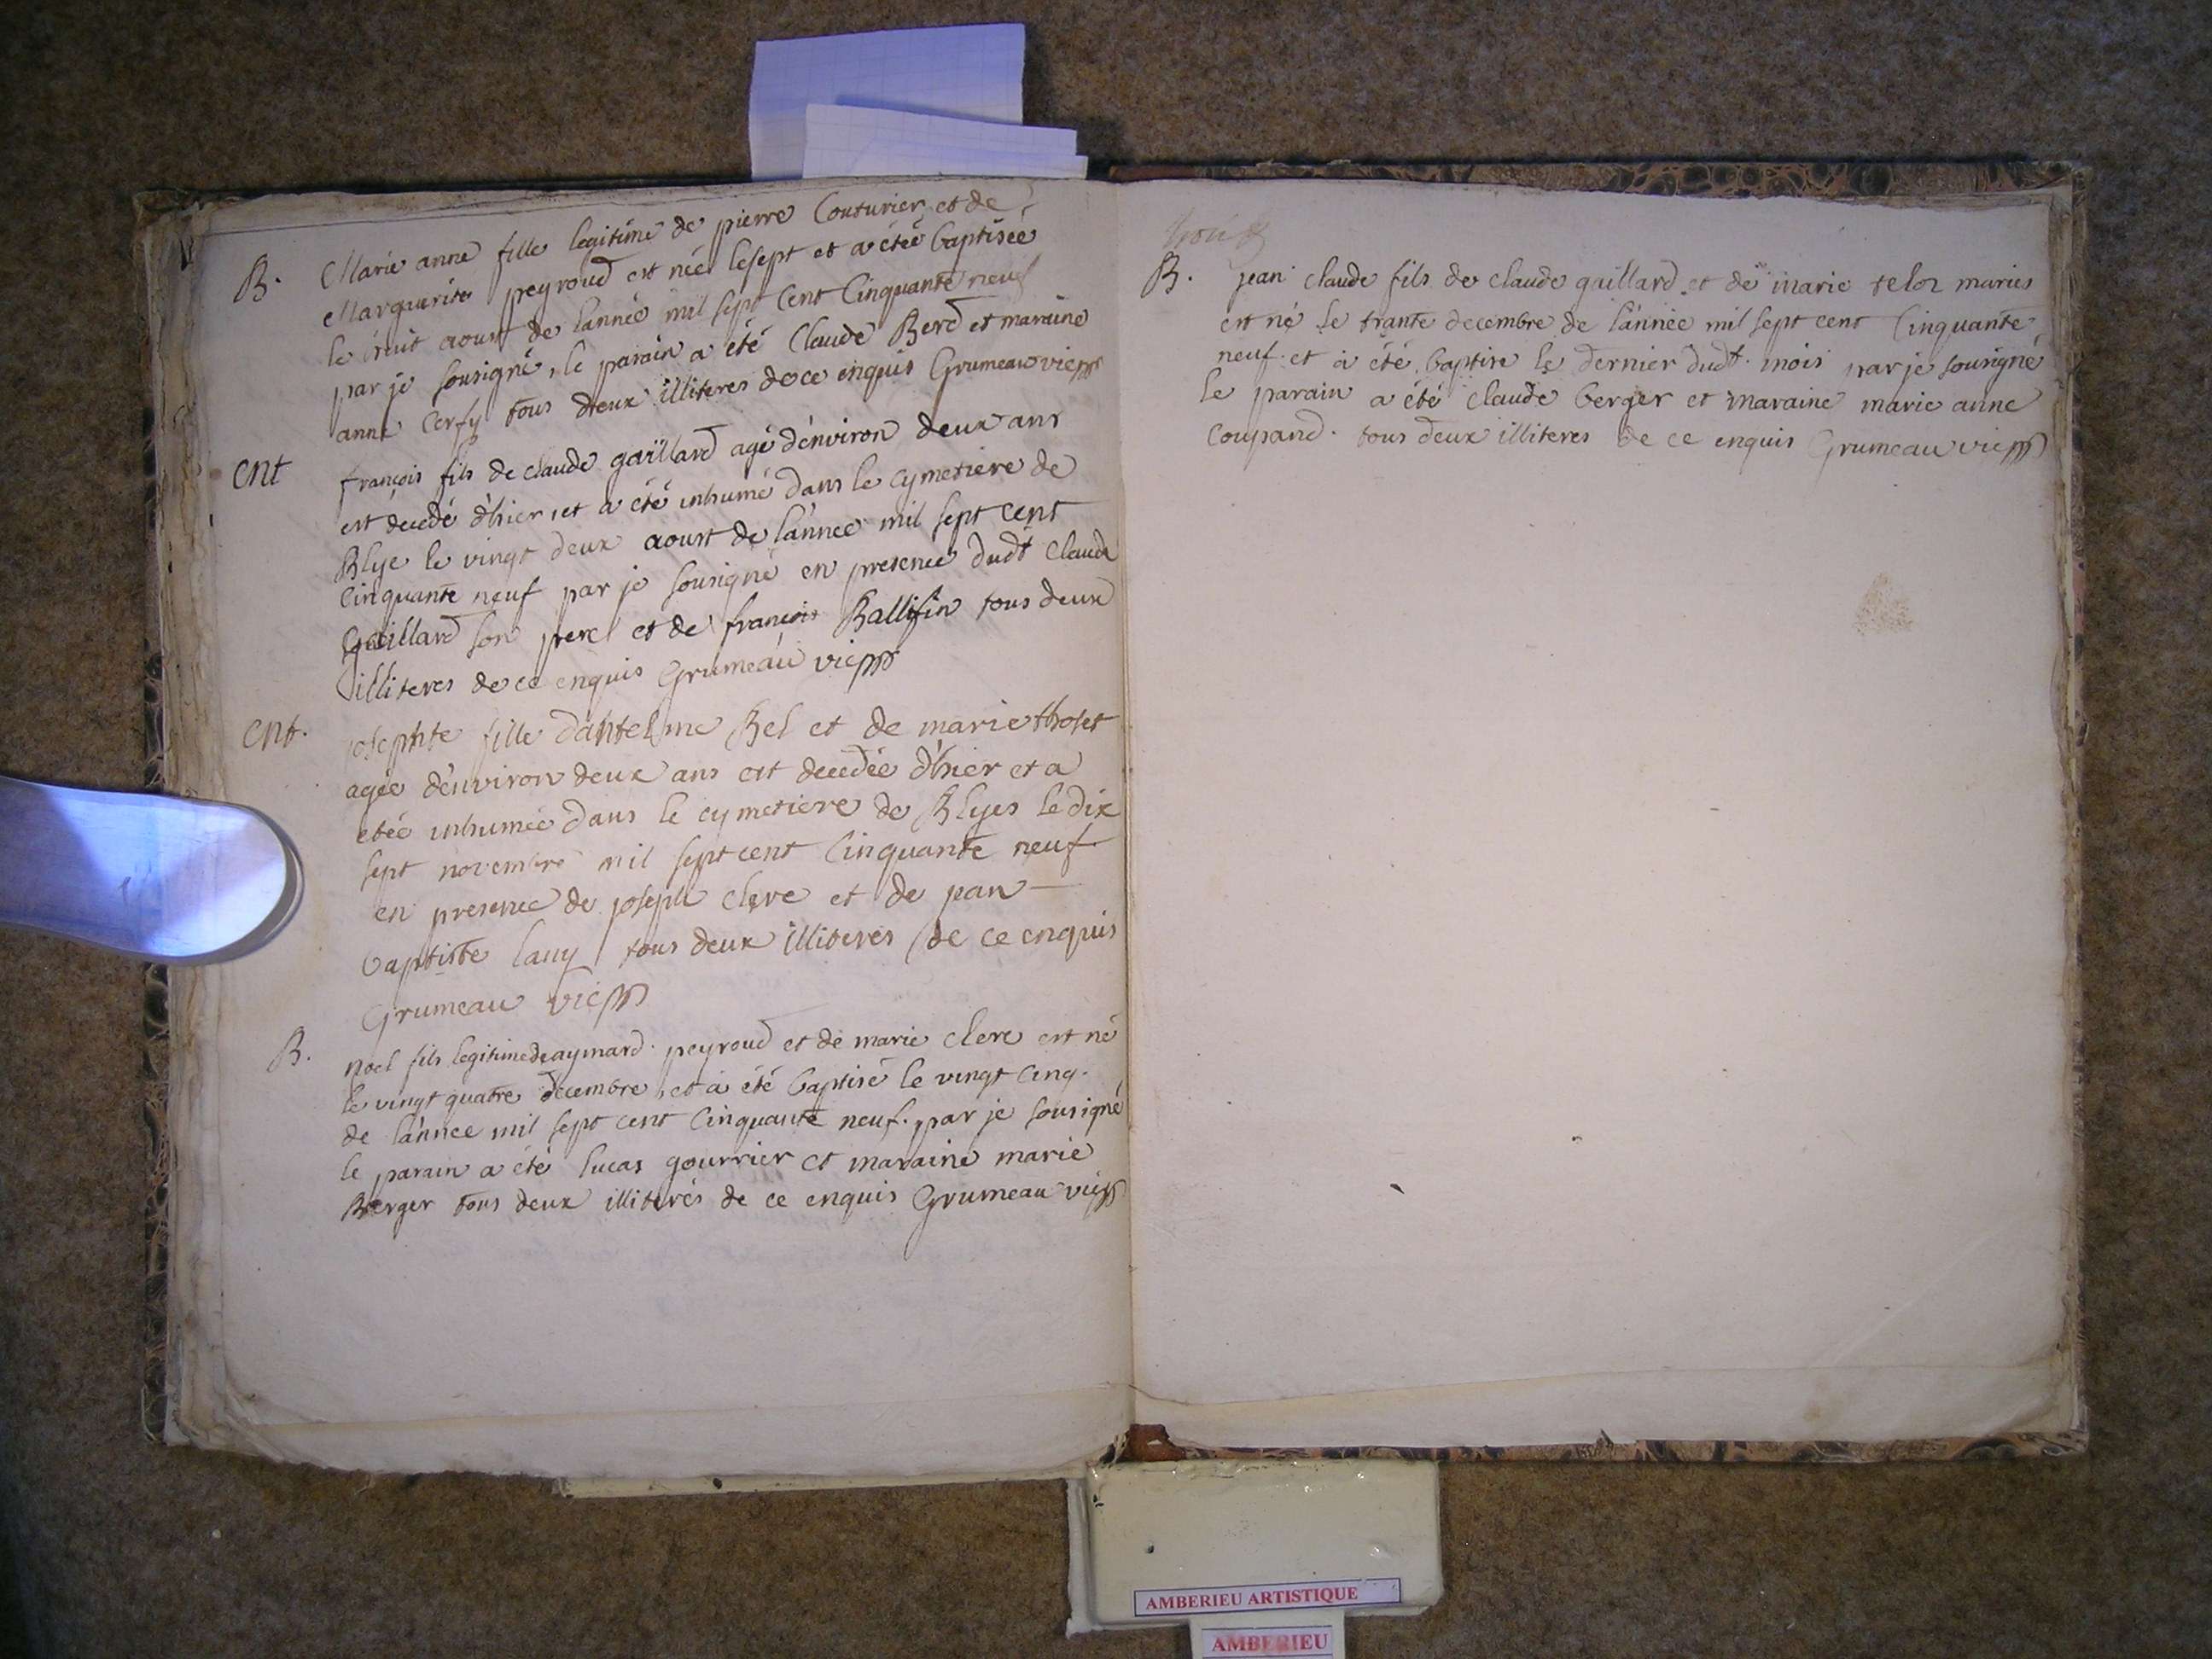 B. Marie anne fille legitime de pierre Couturier et de
Marguerite peyroud est née le sept et a étée baptisée
le huit aoust de lannée mil sept Cent Cinquante neuf
par je sousigné, le parain a été Claude Berd et maraine
anne Cerfy tous deux illiteres de ce enquis Grumeau vic
Ent françois fils de claude gaillard agé d'énviron deux ans
est decedé d'hier, et a été inhumé dans le cymetiere de
Blye le vingt deux aoust de lánnee mil sept cent
Cinquante neuf par je sousigné en presence dudt Claude
Gaillard son pere et de françois Ballifin tous deux
illiteres de ce enquis Grumeau vic
Ent. josephte fille dantelme Bel et de marie tholet
agée d'énviron deux ans est decedée d'hier et a
étée inhumée dans le cymetiere de Blyes le dix
sept novembre mil sept cent Cinquante neuf
en presence de joseph clere et de jean
baptiste lauy tous deux illiterés de ce enquis
Grumeau vic
B. noel fils legitime de aymard peyroud et de marie clere est né
le vingt quatre decembre et a été baptisé le vingt Cinq.
de lánnee mil sept cent Cinquante neuf. par je sousigné
le parain a été lucas gourrier et maraine marie
Berger tous deux illiterés de ce enquis Grumeau vic
B. jean claude fils de claude gaillard et de marie telor maries
est né le trante decembre de lánnée mil sept cent Cinquante
neuf. et a été baptise le dernier dudt. mois par je sousigné
le parain a été claude berger et maraine marie anne
Coupand. tous deux illiteres de ce enquis Grumeau vic
AMBERIEU ARTISTIQUE
AMBERIEU